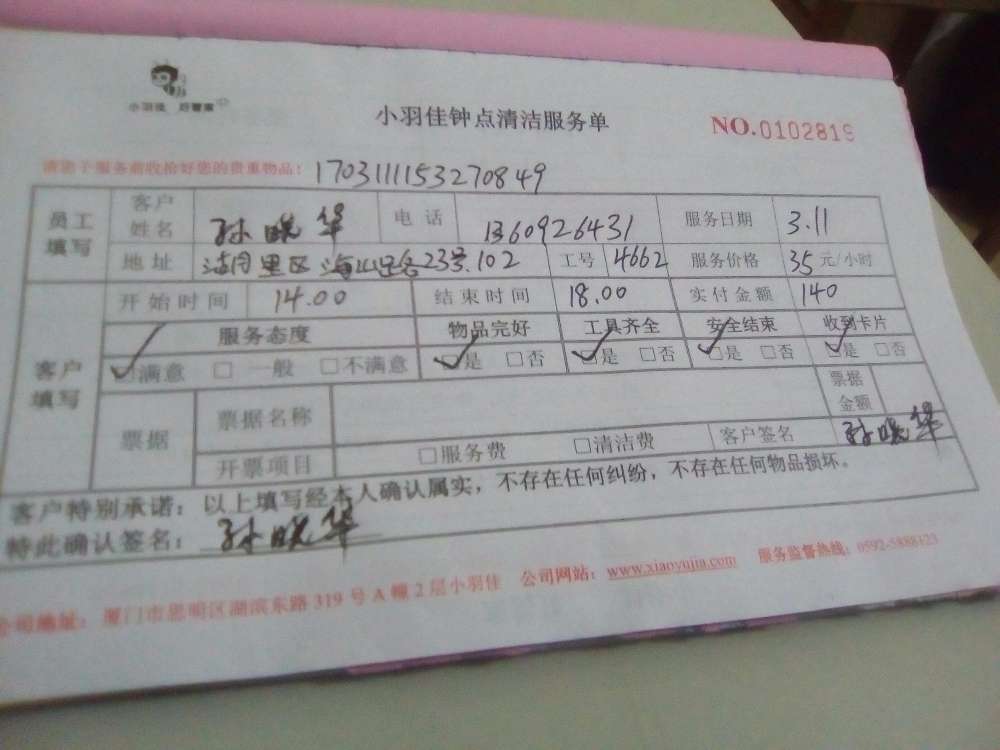 小羽佳 好管家
小羽佳钟点清洁服务单
NO.0102819
请您于服务前收拾好您的贵重物品! 1703111153270849
员工填写 客户姓名 孙晓华 电话 1360926431 服务日期 3.11
地址 湖里区海山 23号.102 工号 4662 服务价格 35元/小时
客户填写 开始时间 14.00 结束时间 18.00 实付金额 140
服务态度 物品完好 工具齐全 安全结束 收到卡片
☑满意 □一般 □不满意 ☑是 □否 ☑是 □否 ☑是 □否 ☑是 □否
票据 票据名称 票据金额
开票项目 □服务费 □清洁费 客户签名 孙晓华
客户特别承诺：以上填写经本人确认属实，不存在任何纠纷，不存在任何物品损坏。
特此确认签名：孙晓华
公司地址：厦门市思明区湖滨东路319号A幢2层小羽佳 公司网站：www.xiaoyujia.com 服务监督热线：0592-5888123